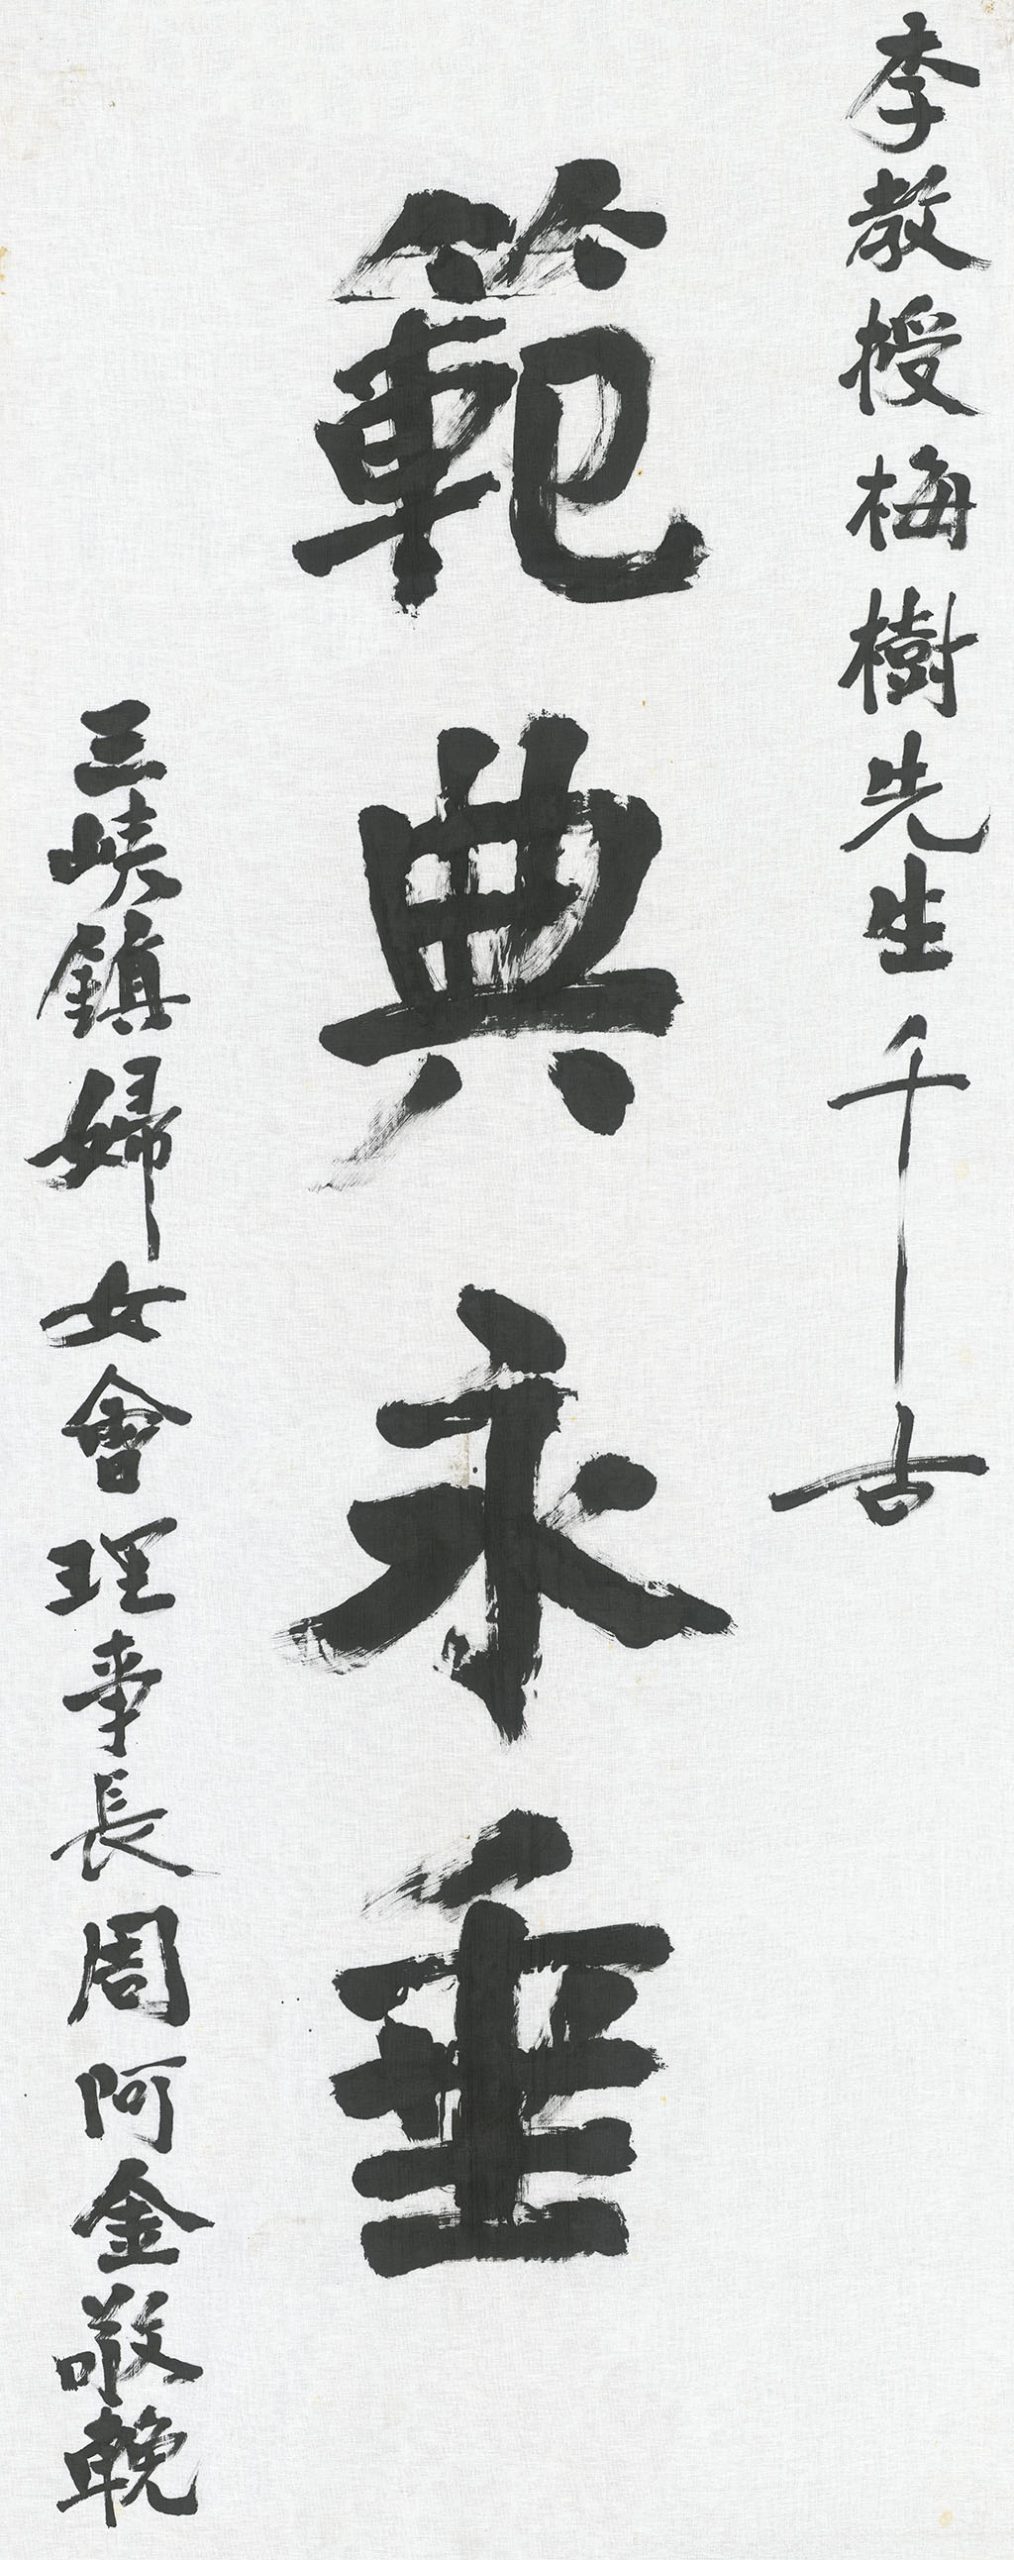 李教授梅樹先生千古
範典永垂
三峽鎮婦女會理事長周阿金敬輓